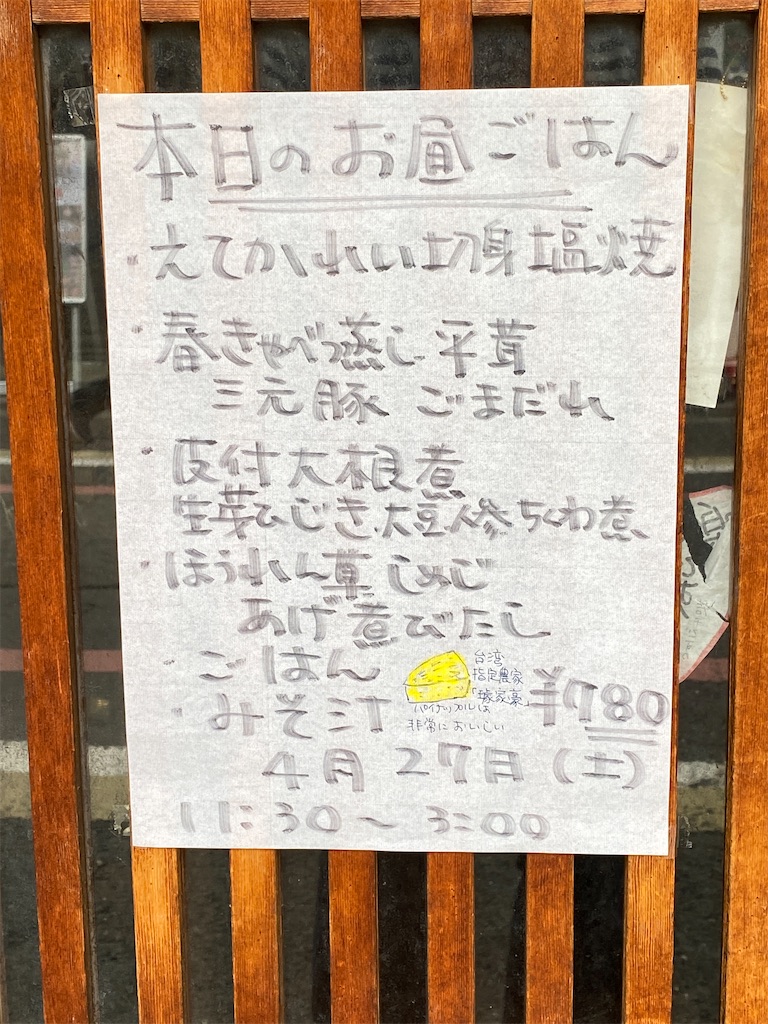 本日のお昼ごはん
・えてかれい切身塩焼
・春きゃべつ蒸し 平茸
三元豚 ごまだれ
・皮付大根煮
生芽ひじき、大豆人参ちくわ煮
・ほうれん草 しめじ
あげ煮びたし
・ごはん
・みそ汁
台湾
指定農家
パイナップルは
非常においしい
¥780
4月27日(土)
11:30〜3:00